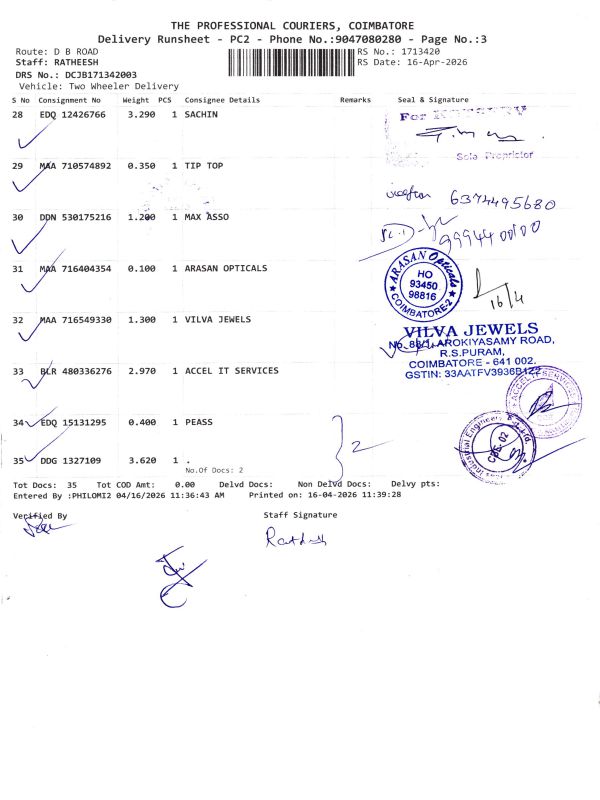 THE PROFESSIONAL COURIERS, COIMBATORE
Delivery Runsheet - PC2 - Phone No.:9047080280 - Page No.:3
Route: D B ROAD
RS No.: 1713420
Staff: RATHEESH
RS Date: 16-Apr-2026
DRS No.: DCJB171342003
Vehicle: Two Wheeler Delivery
S No Consignment No Weight PCS Consignee Details Remarks Seal & Signature
28 EDQ 12426766 3.290 1 SACHIN
For
Sole Proprietor
29 MAA 710574892 0.350 1 TIP TOP
6374495680
30 DDN 530175216 1.200 1 MAX ASSO
9994400100
31 MAA 716404354 0.100 1 ARASAN OPTICALS
ARASAN Opticals
HO
93450
98816
COIMBATORE-2
16/4
32 MAA 716549330 1.300 1 VILVA JEWELS
VILVA JEWELS
No. 88/1, AROKIYASAMY ROAD,
R.S.PURAM,
COIMBATORE - 641 002.
GSTIN: 33AATFV3936B1Z2
33 BLR 480336276 2.970 1 ACCEL IT SERVICES
ACCEL IT SERVICES
34 EDQ 15131295 0.400 1 PEASS
2
Industrial Engineers
CBE-02
35 DDG 1327109 3.620 1 .
No.Of Docs: 2
Tot Docs: 35 Tot COD Amt: 0.00 Delvd Docs: Non Delvd Docs: Delvy pts:
Entered By :PHILOMI2 04/16/2026 11:36:43 AM Printed on: 16-04-2026 11:39:28
Verified By
Staff Signature
Ratheesh